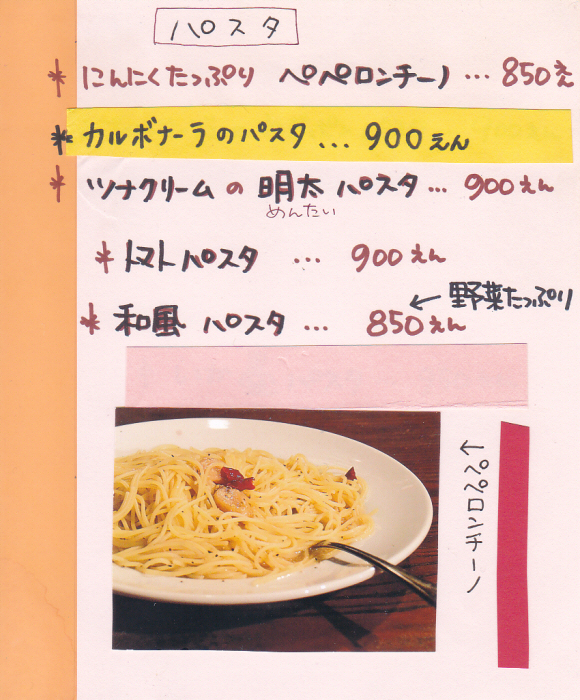 パスタ
* にんにくたっぷり ペペロンチーノ … 850え
* カルボナーラのパスタ … 900えん
* ツナクリームの明太パスタ … 900えん
めんたい
* トマトパスタ … 900えん
← 野菜たっぷり
* 和風パスタ … 850えん
←ペペロンチーノ